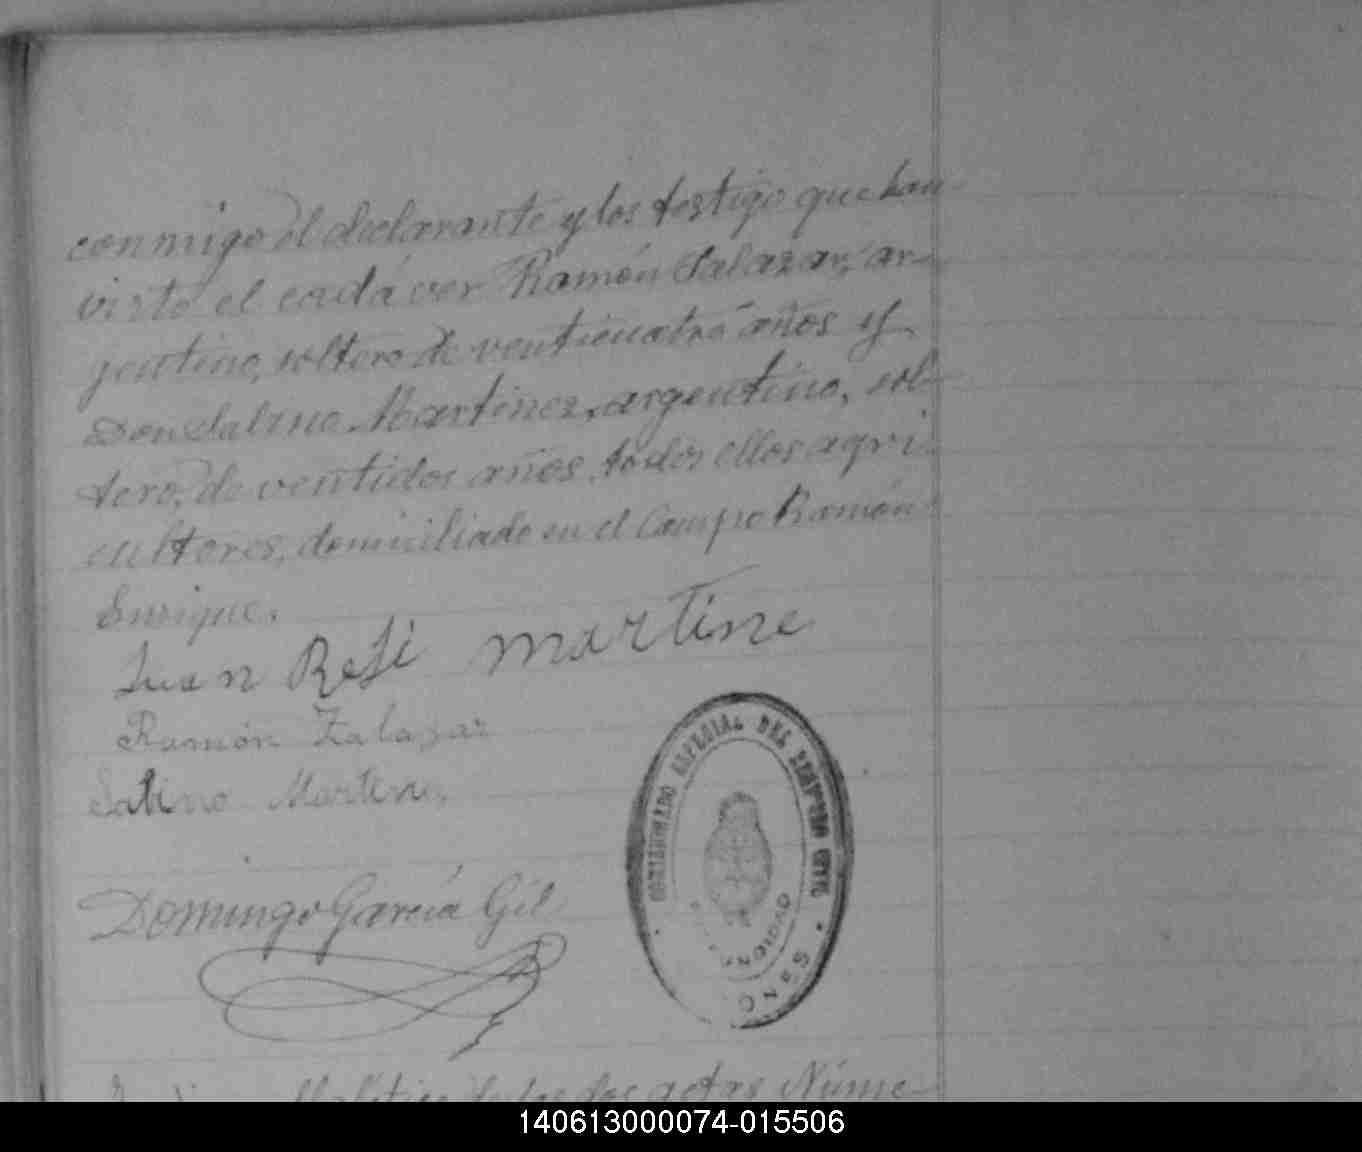 conmigo el declarante y los testigo que han
visto el cadáver Ramón Salazar, ar-
gentino, soltero de venticuatro años y
Don Salino Martinez, argentino, sol-
tero, de ventidos años, todos ellos agri-
cultores, domiciliado en el Campo Ramón
Enrique.
Juan Resi Martine
Ramón Zalazar
Salino Martinez
Domingo García Gil
ESPECIAL DEL
ONES
todos dos actas Núme-
140613000074-015506